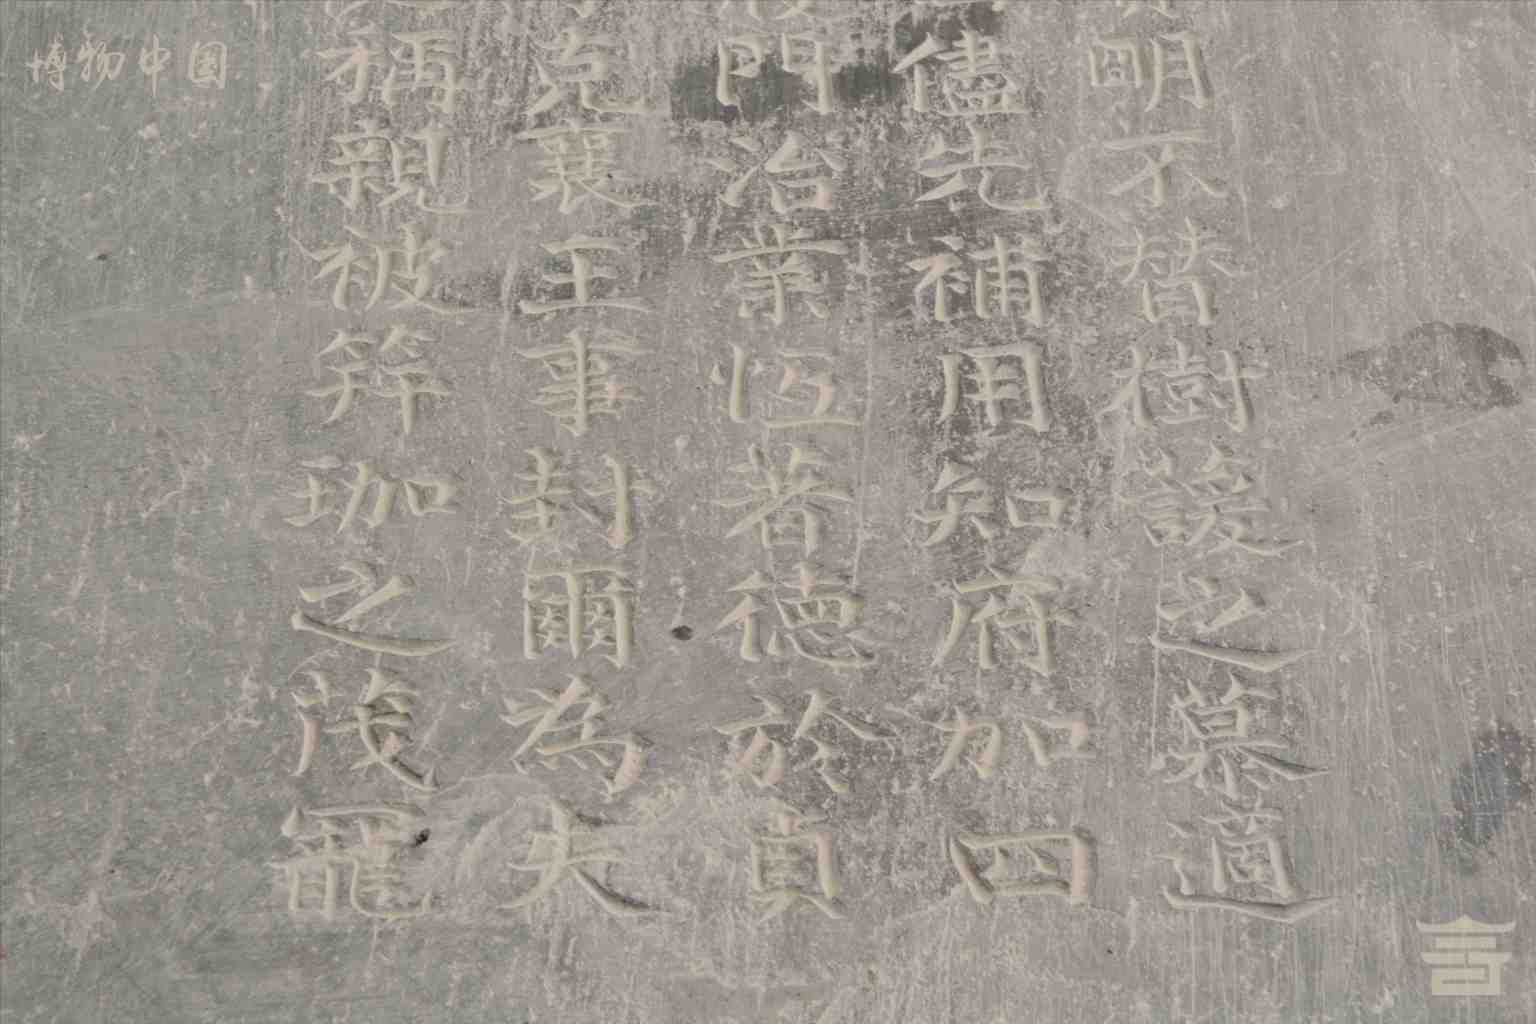 博物中国
明不替樹諼之慕適
儘先補用知府加四
門冶業恆著德於貞
克襄王事封爾為夫
稱親被笄珈之茂寵